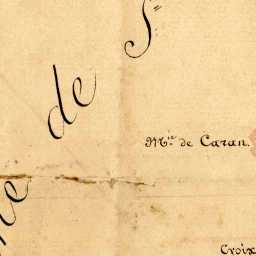 de S
Mⁱⁿ de Caran.
Croix